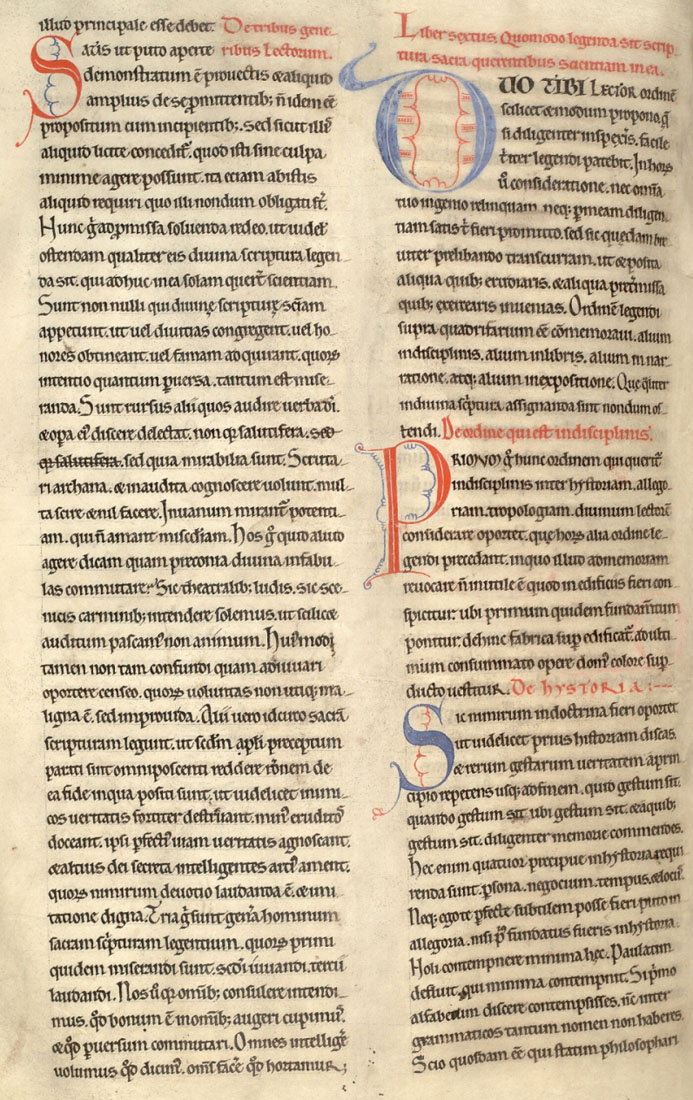 illud principale esse debet. De tribus gene-
Satis ut puto aperte ribus Lectorum.
demonstratum ē provectis & aliquid
amplius de se ꝓmittentib; ñ idem eē
propositum cum incipientib;. Sed sicut illis
aliquid licite conceditᷣ. quod isti sine culpa
minime agere possunt. ita etiam ab istis
aliquid requiri quo illi nondum obligati sť.
Hunc g̃ ad promissa solvenda redeo. ut videlꝫ
ostendam qualiter eis divina scriptura legen-
da sit. qui adhuc in ea solam querūt scientiam.
Sunt non nulli qui divinę scripturę sc̄iam
appetunt. ut vel divitias congregent. vel ho-
nores obtineant. vel famam adquirant. quorꝫ
intentio quantum ꝑversa. tantum est mise-
randa. Sunt rursus alii quos audire verba di.
& opa eiꝰ discere delectat. non qꝛ salutifera. sed
qꝛ salutifera. sed quia mirabilia sunt. Scruta-
ri archana. & inaudita cognoscere volunt. mul-
ta scire & nil facere. In vanum mirantᷣ potenti-
am. qui ñ amant misc̄diam. Hos g̃ quid aliud
agere dicam quam preconia divina in fabu-
las commutare? Sic theatralib; ludis. sic sce-
nicis carminib; intendere solemus. ut scilicꝫ
auditum pascamꝰ non animum. Huiꝰmodi
tamen non tam confundi quam adiuvari
oportere censeo. quorꝫ voluntas non utiq; ma-
ligna ē. sed improvida. Alii vero idcirco sacrā
scripturam legunt. ut sc̄dm apłi preceptum
parati sint omni poscenti reddere rōnem de
ea fide in qua positi sunt. ut videlicet inimi-
cos veritatis fortiter destruant. minꝰ eruditos
doceant. ipsi ꝑfectiꝰ viam veritatis agnoscant.
& altius dei secreta intelligentes artiꝰ ament.
quorꝫ nimirum devotio laudanda ē. & imi-
tatione digna. Tria g̃ sunt gena hominum
sacram sc̄pturam legentium. quorꝫ primi
quidem miserandi sunt. sc̄di iuvandi. tercii
laudandi. Nos ṽ qꝛ omib; consulere intendi-
mus. qd bonum ē in omib; augeri cupimꝰ.
& qd ꝑversum commutari. Omnes intelligẽ
volumus qd dicimꝰ. oms facẽ qd hortamur;
Liber sextus. Quomodo legenda sit scrip-
tura sacra querentibus scientiam in ea.
DUO TIBI LECTOR ordinē
scilicet & modum propono. q̄
si diligenter inspexeris. facile
t̃ iter legendi patebit. In horꝫ
ṽ consideratione. nec omīa
tuo ingenio relinquam neq; ꝑ meam diligen-
tiam satis t̃ fieri promitto. sed sic quedam bre-
viter prelibando transcuriam. ut & posita
aliqua quib; erudiaris. & aliqua prꝫmissa
quib; exercearis invenias. Ordinē legendi
supra quadrifarium eē cōmemoravi. alium
in disciplinis. alium in libris. alium in nar-
ratione. atq; alium in expositione. Quę qualiter
in divina sc̄ptura assignanda sint nondum os-
tendi. De ordine qui est in disciplinis.
PRIMO g̃ hunc ordinem qui queritᷣ
in disciplinis inter hystoriam. allego-
riam. tropologiam. divinum lectorē
considerare oportet. que horꝫ alia ordine le-
gendi precedant. in quo illud ad memoriam
revocare ñ inutile ē quod in edificiis fieri con-
spicitur. ubi primum quidem fundamentum
ponitur. dehinc fabrica suꝑ edificatᷣ. ad ulti-
mum consummato opere domꝰ colore suꝑ-
ducto vestitur. De hystoria:—
Sic nimirum in doctrina fieri oportet
ut videlicet prius historiam discas.
& rerum gestarum veritatem a prin-
cipio repetens usq; ad finem. quid gestum sit.
quando gestum sit. ubi gestum sit. & a quib;
gestum sit. diligenter memorie commendes.
Hec enim quatuor precipue in hystoria requi-
renda sunt. ꝑsona. negocium. tempus. & locꝰ.
Neq; ego te ꝑfecte subtilem posse fieri puto in
allegoria. nisi pꝰ fundatus fueris in hystoria.
Noli contempnere minima hec. Paulatim
defluit. qui minima contempnit. Si pꝰmo
alfabetum discere contempsisses. nc̄ inter
grammaticos tantum nomen non haberes.
Scio quosdam eē qui statim philosophari